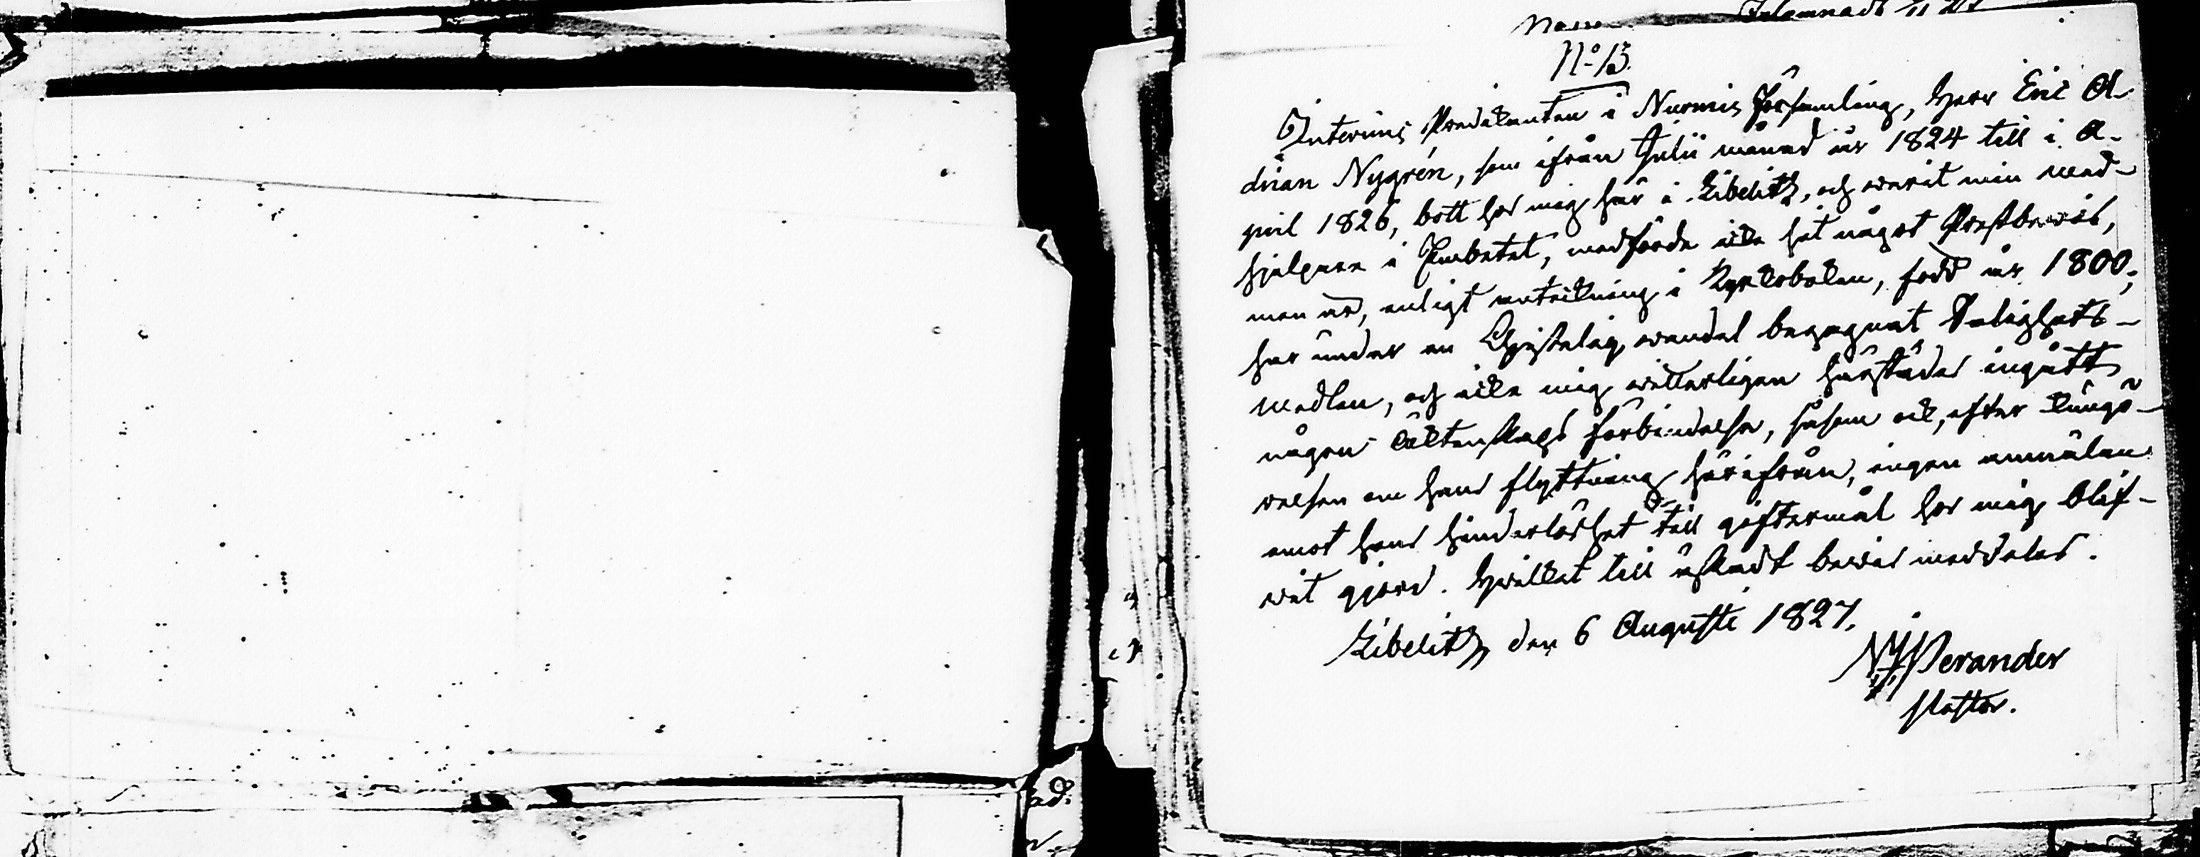 Inlemnadt 11/27
No 13.
Interims Predikanten i Nurmis Församling, Herr Eric A-
drian Nygrén, som ifrån Julii månad år 1824 till i A-
pril 1826, bott hos mig här i Libelitz, och warit min med-
hjelpare i Embetet, medförde icke hit något Prestbewis,
men är, enligt anteckning i Kyrkoboken, född år 1800;
har under en Christelig wandel begagnat Salighets-
medlen, och icke mig witterligen härstädes ingått
någon äktenskaps förbindelse, såsom ock, efter kungö-
relsen om hans flyttning härifrån, ingen anmälan
emot hans hinderlöshet till giftermål hos mig blif-
wit gjord. Hwilket till äskadt bewis meddelas.
Libelitz den 6 Augusti 1827.
Perander
Pastor.